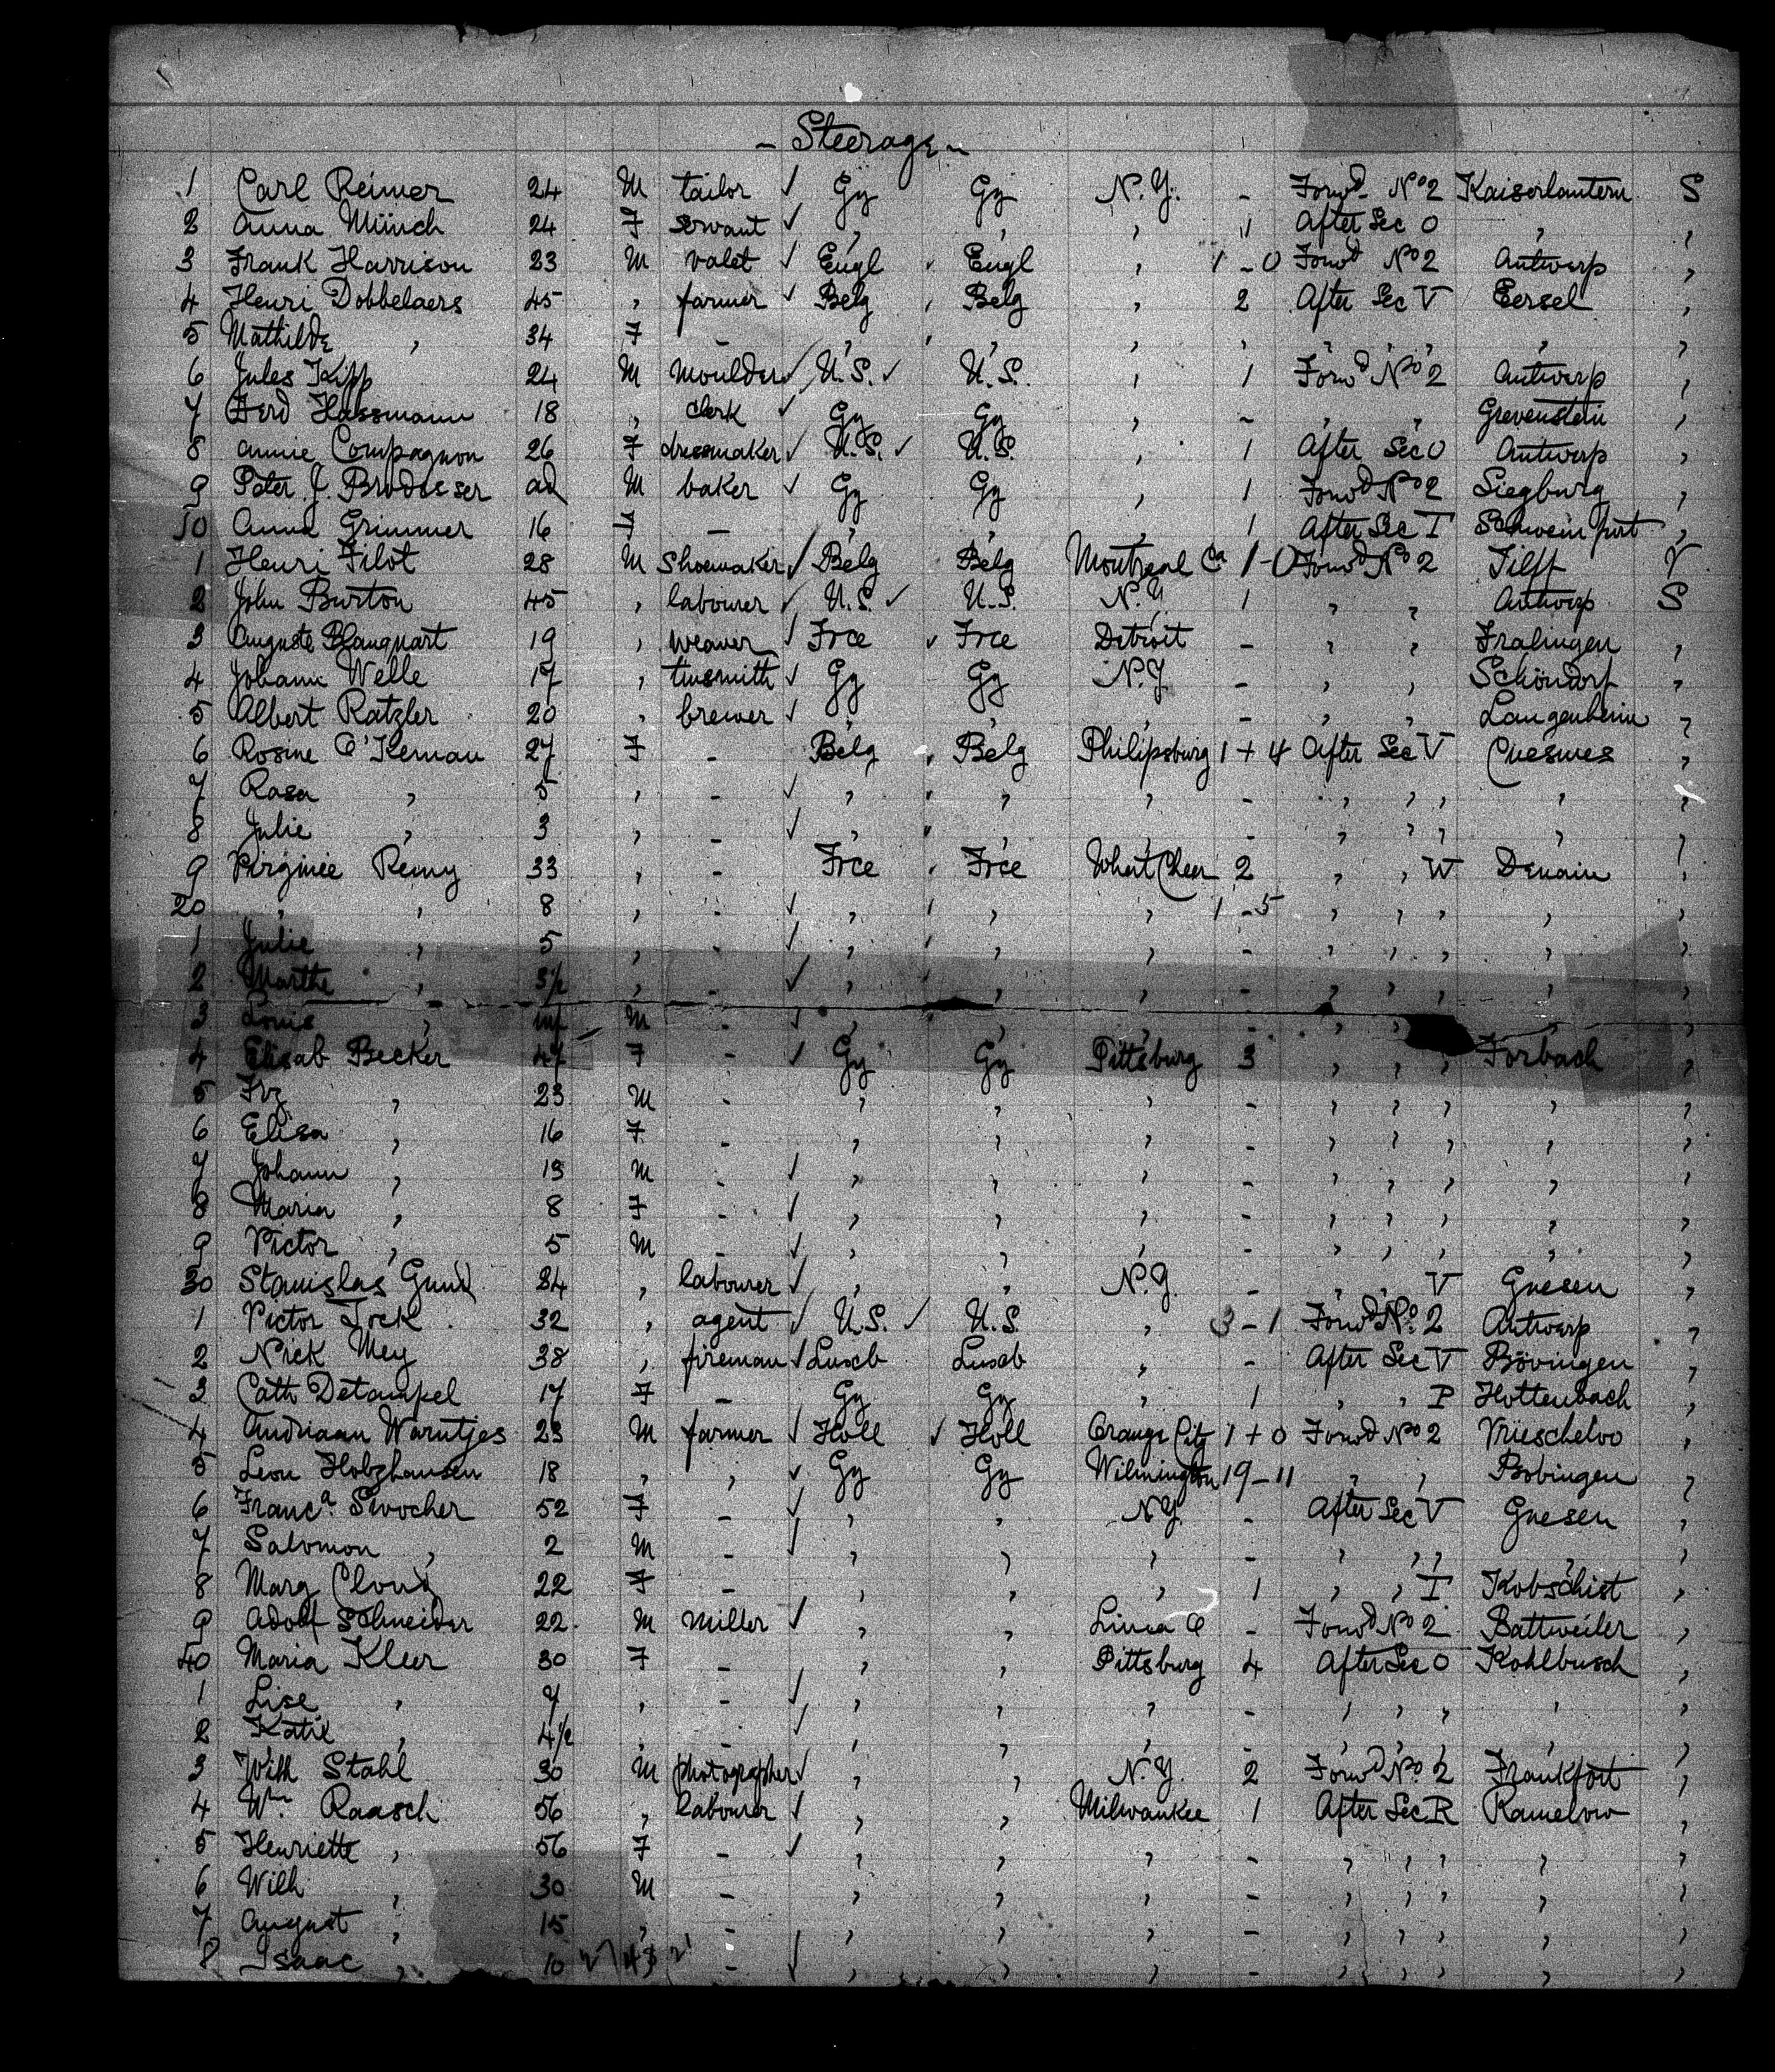 - Steerage -
1 Carl Reimer 24 M tailor ✓ Gy Gy N.Y. - Forwd No 2 Kaiserlautern S
2 Anna Münch 24 F servant ✓ , , , 11 After Sec O , ,
3 Frank Harrison 23 M valet ✓ Engl , Engl , 1-0 Forwd No 2 Antwerp ,
4 Henri Dobbelaers 45 , farmer ✓ Belg , Belg , 2 After Sec V Eersel ,
5 Mathilde , 34 F - , , , , , , , , , ,
6 Jules Kipp 24 M moulder ✓ U.S. ✓ U.S. , 1 Forwd No 2 Antwerp ,
7 Ferd Hassmann 18 , clerk ✓ Gy Gy , - , , Grevenstein ,
8 Annie Compagnon 26 F dressmaker ✓ U.S. ✓ U.S. , 1 After Sec O Antwerp ,
9 Peter J. Brodesser ad M baker ✓ Gy Gy , 1 Forwd No 2 Siegburg ,
10 Anna Grimmer 16 F - , , , 1 After Sec I Schweinfurt ,
1 Henri Filot 28 M Shoemaker ✓ Belg Belg Montreal Ca 1-0 Forwd No 2 Tilff
2 John Burton 45 , labourer ✓ U.S. ✓ U.S. N.Y. 1 , , Antwerp S
3 Auguste Blanquart 19 , weaver ✓ Frce ✓ Frce Detroit - , , Fralingen ,
4 Johann Welle 17 , tinsmith ✓ Gy Gy N.Y. - , , Schöndorf ,
5 Albert Ratzler 20 , brewer ✓ , , , - , , Langenheim ,
6 Rosine O'Kernan 27 F - Belg , Belg Philipsburg 1+4 After Sec V Cuesmes ,
7 Rosa , 5 , - ✓ , , , , - , , , , ,
8 Julie , 3 , - ✓ , , , , - , , , , ,
9 Virginie Remy 33 , - Frce , Frce What Cheer 2 , , W Denain ,
20 , , 8 , - ✓ , , , , 1-5 , , , , ,
1 Julie , 5 , - ✓ , , , , - , , , , ,
2 Marthe , 3½ , - ✓ , , , , - , , , , ,
3 Louis , inf M - ✓ , , , - , , , ,
4 Elisab Becker 47 F - ✓ Gy Gy Pittsburg 3 , , , Forbach ,
5 Frz , 23 M - , , , - , , , , ,
6 Elisa , 16 F - , , , - , , , , ,
7 Johann , 13 M - ✓ , , , - , , , , ,
8 Maria , 8 F - ✓ , , , - , , , , ,
9 Victor , 5 M - ✓ , , , - , , , , ,
30 Stanislas 34 , labourer ✓ , , N.Y. - , , V Gnesen ,
1 Victor Jock 32 , agent ✓ U.S. ✓ U.S. , 3-1 Forwd No 2 Antwerp ,
2 Nick Mey 38 , fireman ✓ Luxb Luxb , - After Sec V Bövingen ,
3 Cath Detampel 17 F - Gy Gy , 1 , , P Hottenbach ,
4 Andriaan Warntjes 23 M farmer ✓ Holl ✓ Holl Orange City 1+0 Forwd No 2 Vriescheloo ,
5 Leon Holzhausen 18 , , ✓ Gy Gy Wilmington 19-11 , , Bobingen ,
6 Franca Swocher 52 F - ✓ , , N.Y. - After Sec V Gnesen ,
7 Salomon , 2 M - ✓ , , , - , , , , ,
8 Marg 22 F - , , , 1 , , I Kobschist ,
9 Adolf Schneider 22 M miller ✓ , , Lima O - Forwd No 2 Battweiler ,
40 Maria Kleer 30 F - , , Pittsburg 4 After Sec O Kohlbusch ,
1 Lise , 9 , - ✓ , , , - , , , , ,
2 Katie , 4½ , - ✓ , , , - , , , , ,
3 Wilh Stahl 30 M photographer ✓ , , N.Y. 2 Forwd No 2 Frankfort ,
4 Wm Raasch 56 , labourer ✓ , , Milwaukee 1 After Sec R Ramelow ,
5 Henriette , 56 F - ✓ , , , - , , , , ,
6 Wilh , 30 M - , , , - , , , , ,
7 August , 15 , - , , , - , , , , ,
8 Isaac , 10 - ✓ , , , - , , , , ,